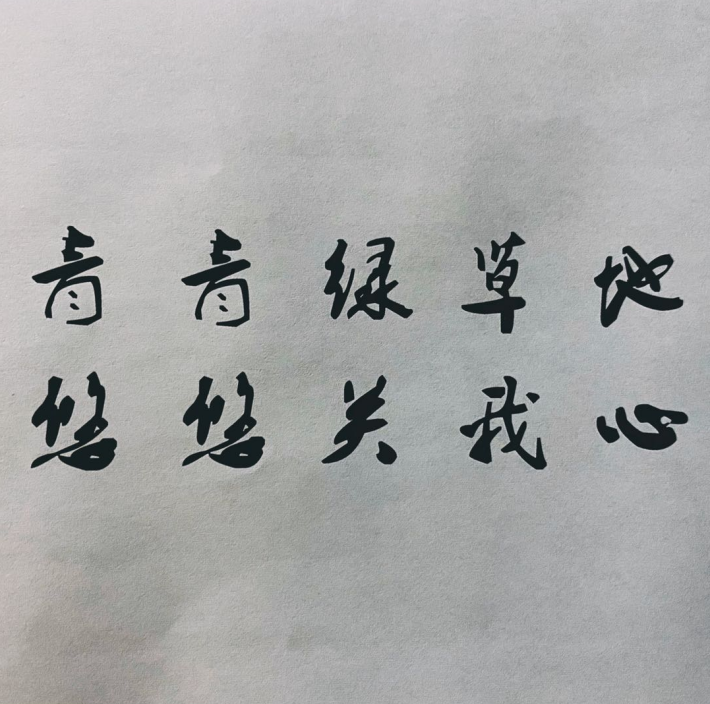 青青绿草地
悠悠关我心